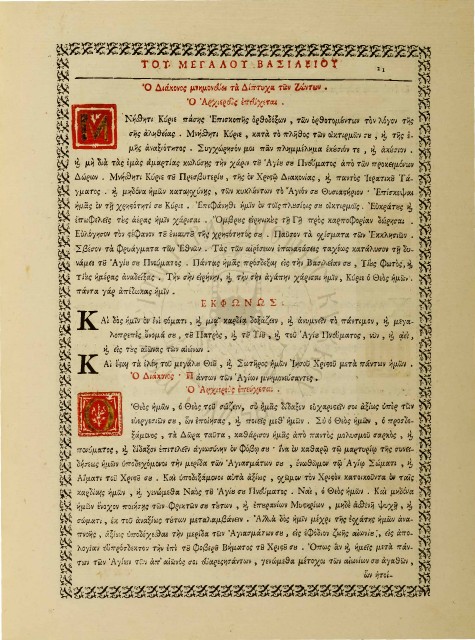 ΤΟΥ ΜΕΓΑΛΟΥ ΒΑΣΙΛΕΙΟΥ
21
Ὁ Διάκονος μνημονεύει τὰ Δίπτυχα τῶν Ζώντων.
Ὁ Ἀρχιερεὺς ἐπεύχεται.
ΜΝήσθητι Κύριε πάσης Ἐπισκοπῆς ὀρθοδόξων, τῶν ὀρθοτομούντων τὸν λόγον τῆς
σῆς ἀληθείας. Μνήσθητι Κύριε, κατὰ τὸ πλῆθος τῶν οἰκτιρμῶν σου, καὶ τῆς ἐ-
μῆς ἀναξιότητος. Συγχώρησόν μοι πᾶν πλημμέλημα ἑκούσιόν τε, καὶ ἀκούσιον.
καὶ μὴ διὰ τὰς ἐμὰς ἁμαρτίας κωλύσῃς τὴν χάριν τοῦ Ἁγίου σου Πνεύματος ἀπὸ τῶν προκειμένων
Δώρων. Μνήσθητι Κύριε τοῦ Πρεσβυτερίου, τῆς ἐν Χριστῷ Διακονίας, καὶ παντὸς Ἱερατικοῦ Τά-
γματος. καὶ μηδένα ἡμῶν καταισχύνῃς, τῶν κυκλούντων τὸ Ἅγιόν σου Θυσιαστήριον. Ἐπίσκεψαι
ἡμᾶς ἐν τῇ χρηστότητί σου Κύριε. Ἐπιφάνηθι ἡμῖν ἐν τοῖς πλουσίοις σου οἰκτιρμοῖς. Εὐκράτους καὶ
ἐπωφελεῖς τοὺς ἀέρας ἡμῖν χάρισαι. Ὄμβρους εἰρηνικοὺς τῇ Γῇ πρὸς καρποφορίαν δώρησαι.
Εὐλόγησον τὸν στέφανον τοῦ ἐνιαυτοῦ τῆς χρηστότητός σου. Παῦσον τὰ σχίσματα τῶν Ἐκκλησιῶν.
Σβέσον τὰ Φρυάγματα τῶν Ἐθνῶν. Τὰς τῶν αἱρέσεων ἐπαναστάσεις ταχέως κατάλυσον τῇ δυ-
νάμει τοῦ Ἁγίου σου Πνεύματος. Πάντας ἡμᾶς πρόσδεξαι εἰς τὴν Βασιλείαν σου, Υἱοὺς Φωτὸς, καὶ
Υἱοὺς ἡμέρας ἀναδείξας. Τὴν σὴν εἰρήνην, καὶ τὴν σὴν ἀγάπην χάρισαι ἡμῖν, Κύριε ὁ Θεὸς ἡμῶν.
πάντα γὰρ ἀπέδωκας ἡμῖν.
ΕΚΦΩΝΩΣ.
ΚΑὶ δὸς ἡμῖν ἐν ἑνὶ στόματι, καὶ μιᾷ καρδίᾳ δοξάζειν, καὶ ἀνυμνεῖν τὸ πάντιμον, καὶ μεγα-
λοπρεπὲς ὄνομά σου, τοῦ Πατρὸς, καὶ τοῦ Υἱοῦ, καὶ τοῦ Ἁγίου Πνεύματος, νῦν, καὶ ἀεὶ,
καὶ εἰς τοὺς αἰῶνας τῶν αἰώνων.
ΚΑὶ ἔσται τὰ ἐλέη τοῦ μεγάλου Θεοῦ, καὶ Σωτῆρος ἡμῶν Ἰησοῦ Χριστοῦ μετὰ πάντων ἡμῶν.
Ὁ Διάκονος. Πάντων τῶν Ἁγίων μνημονεύσαντες.
Ὁ Ἀρχιερεὺς ἐπεύχεται.
Ὁ Θεὸς ἡμῶν, ὁ Θεὸς τοῦ σώζειν, σὺ ἡμᾶς δίδαξον εὐχαριστεῖν σοι ἀξίως ὑπὲρ τῶν
εὐεργεσιῶν σου, ὧν ἐποίησας, καὶ ποιεῖς μεθ' ἡμῶν. Σὺ ὁ Θεὸς ἡμῶν, ὁ προσδε-
ξάμενος, τὰ Δῶρα ταῦτα, καθάρισον ἡμᾶς ἀπὸ παντὸς μολυσμοῦ σαρκὸς, καὶ
πνεύματος, καὶ δίδαξον ἐπιτελεῖν ἁγιωσύνην ἐν Φόβῳ σου. ἵνα ἐν καθαρῷ τῷ μαρτυρίῳ τῆς συνει-
δήσεως ἡμῶν ὑποδεχόμενοι τὴν μερίδα τῶν Ἁγιασμάτων σου, ἑνωθῶμεν τῷ Ἁγίῳ Σώματι, καὶ
Αἵματι τοῦ Χριστοῦ σου. Καὶ ὑποδεξάμενοι αὐτὰ ἀξίως, σχῶμεν τὸν Χριστὸν κατοικοῦντα ἐν ταῖς
καρδίαις ἡμῶν, καὶ γενώμεθα Ναὸς τοῦ Ἁγίου σου Πνεύματος. Ναὶ, ὁ Θεὸς ἡμῶν. Καὶ μηδένα
ἡμῶν ἔνοχον ποιήσῃς τῶν φρικτῶν σου τούτων, καὶ ἐπουρανίων Μυστηρίων, μηδὲ ἀσθενῆ ψυχῇ, καὶ
σώματι, ἐκ τοῦ ἀναξίως τούτων μεταλαμβάνειν. Ἀλλὰ δὸς ἡμῖν μέχρι τῆς ἐσχάτης ἡμῶν ἀνα-
πνοῆς, ἀξίως ὑποδέχεσθαι τὴν μερίδα τῶν Ἁγιασμάτων σου, εἰς ἐφόδιον ζωῆς αἰωνίου, εἰς ἀπο-
λογίαν εὐπρόσδεκτον τὴν ἐπὶ τοῦ Φοβεροῦ Βήματος τοῦ Χριστοῦ σου. Ὅπως ἂν καὶ ἡμεῖς μετὰ πάν-
των τῶν Ἁγίων τῶν ἀπ' αἰῶνός σοι εὐαρεστησάντων, γενώμεθα μέτοχοι τῶν αἰωνίων σου ἀγαθῶν,
ὧν ἡτοί-